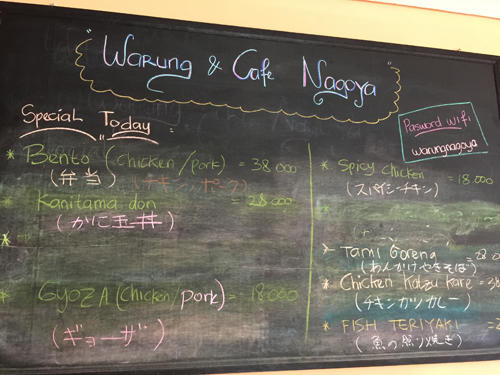 "Warung & Cafe Nagoya"
Special Today =
* Bento (Chicken/pork) = 38.000
(弁当) (チキン/ポーク)
* Kanitama don = 28.000
(かに玉丼)
*
* GYOZA (Chicken/pork) = 18.000
(ギョーザ)
Pasword wifi
warungnagoya
* Spicy chicken = 18.000
(スパイシーチキン)
* Tami Goreng =
(あんかけやきそば)
* Chicken Katzu Kare =
(チキンカツカレー)
* FISH TERIYAKI =
(魚の照り焼き)